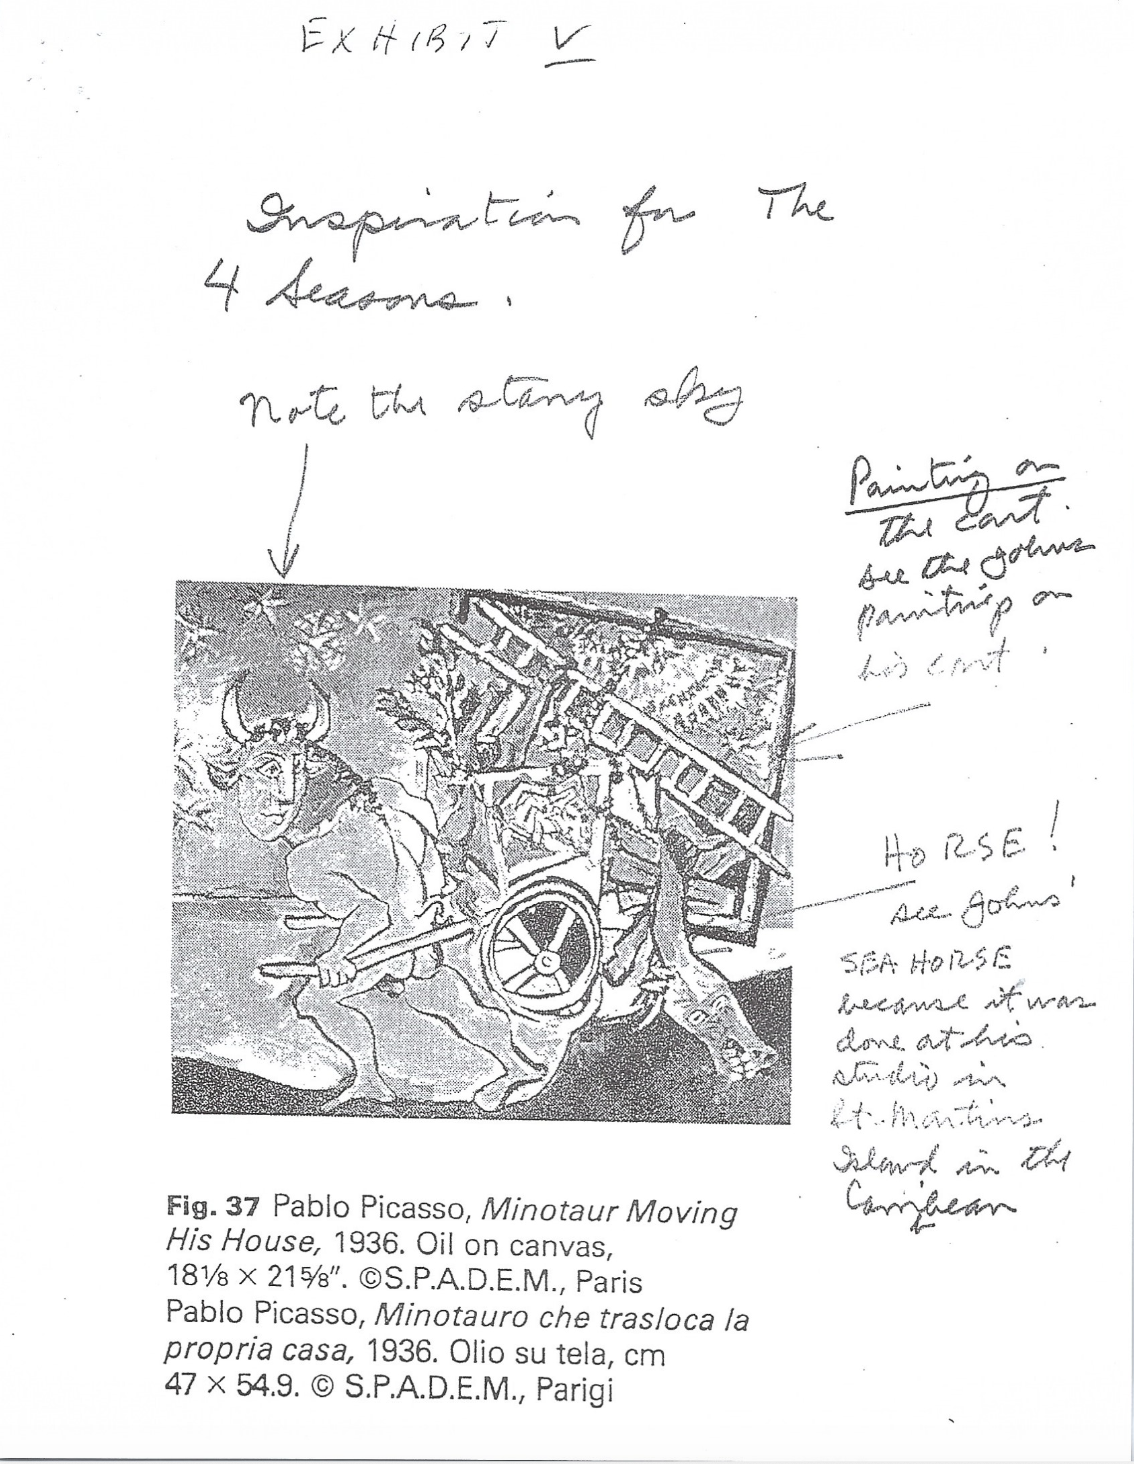 EXHIBIT V
Inspiration for The
4 Seasons.
Note the starry sky
Painting on
the cart.
see the Johns
painting on
his cart.
HORSE!
see Johns'
SEA HORSE
because it was
done at his
studio in
St. Martins
Island in the
Carribean
Fig. 37 Pablo Picasso, Minotaur Moving
His House, 1936. Oil on canvas,
18⅛ × 21⅝". ©S.P.A.D.E.M., Paris
Pablo Picasso, Minotauro che trasloca la
propria casa, 1936. Olio su tela, cm
47 × 54.9. © S.P.A.D.E.M., Parigi